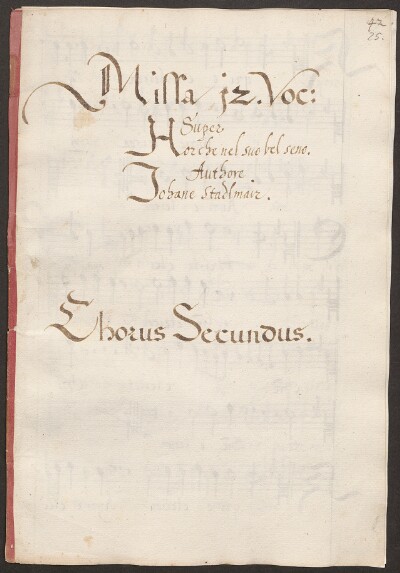 42
25.
Missa j2. Voc:
Super.
Horche nel suo bel seno.
Authore.
Johane Stadlmair.
Chorus Secundus.